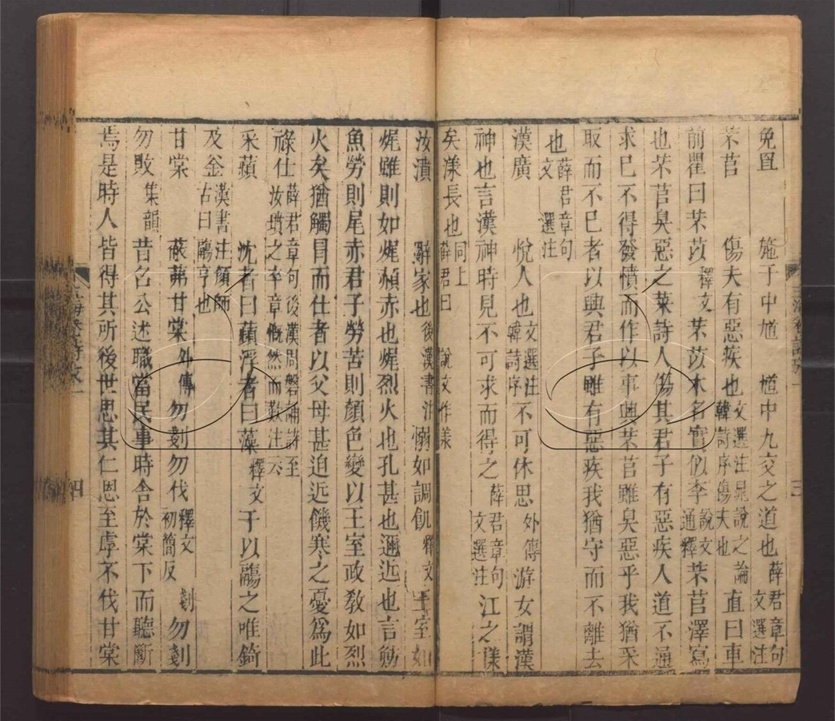 兔罝　施于中馗　馗中九交之道也薛君章句文選注
芣苢　傷夫有惡疾也文選注晁說之論韓詩序傷夫也直曰車
前瞿曰芣苡釋文芣苡木名實似李說文通釋芣苢澤寫
也芣苢臭惡之菜詩人傷其君子有惡疾人道不通
求已不得發憤而作以事興芣苢雖臭惡乎我猶采
取而不已者以興君子雖有惡疾我猶守而不離去
也薛君章句文選注
漢廣　悅人也文選注韓詩序不可休思外傳游女謂漢
神也言漢神時見不可求而得之薛君章句文選注江之漾
矣漾長也同上薛君曰說文作羕
汝濆　辭家也後漢書注惄如調飢釋文王室如
㷄雖則如㷄頳赤也㷄烈火也孔甚也邇近也言魴
魚勞則尾赤君子勞苦則顏色變以王室政敎如烈
火矣猶觸冒而仕者以父母甚迫近饑寒之憂爲此
祿仕薛君章句後漢周磐誦詩至汝墳之卒章慨然而歎注云
采蘋　沈者曰蘋浮者曰藻釋文于以鬺之唯錡
及釜漢書注顏師古曰鬺亨也
甘棠　蔽茀甘棠外傳勿剗勿伐釋文初簡反剗勿剗
勿敗集韻昔召公述職當民事時舍於棠下而聽斷
焉是時人皆得其所後世思其仁恩至虖不伐甘棠
三
四